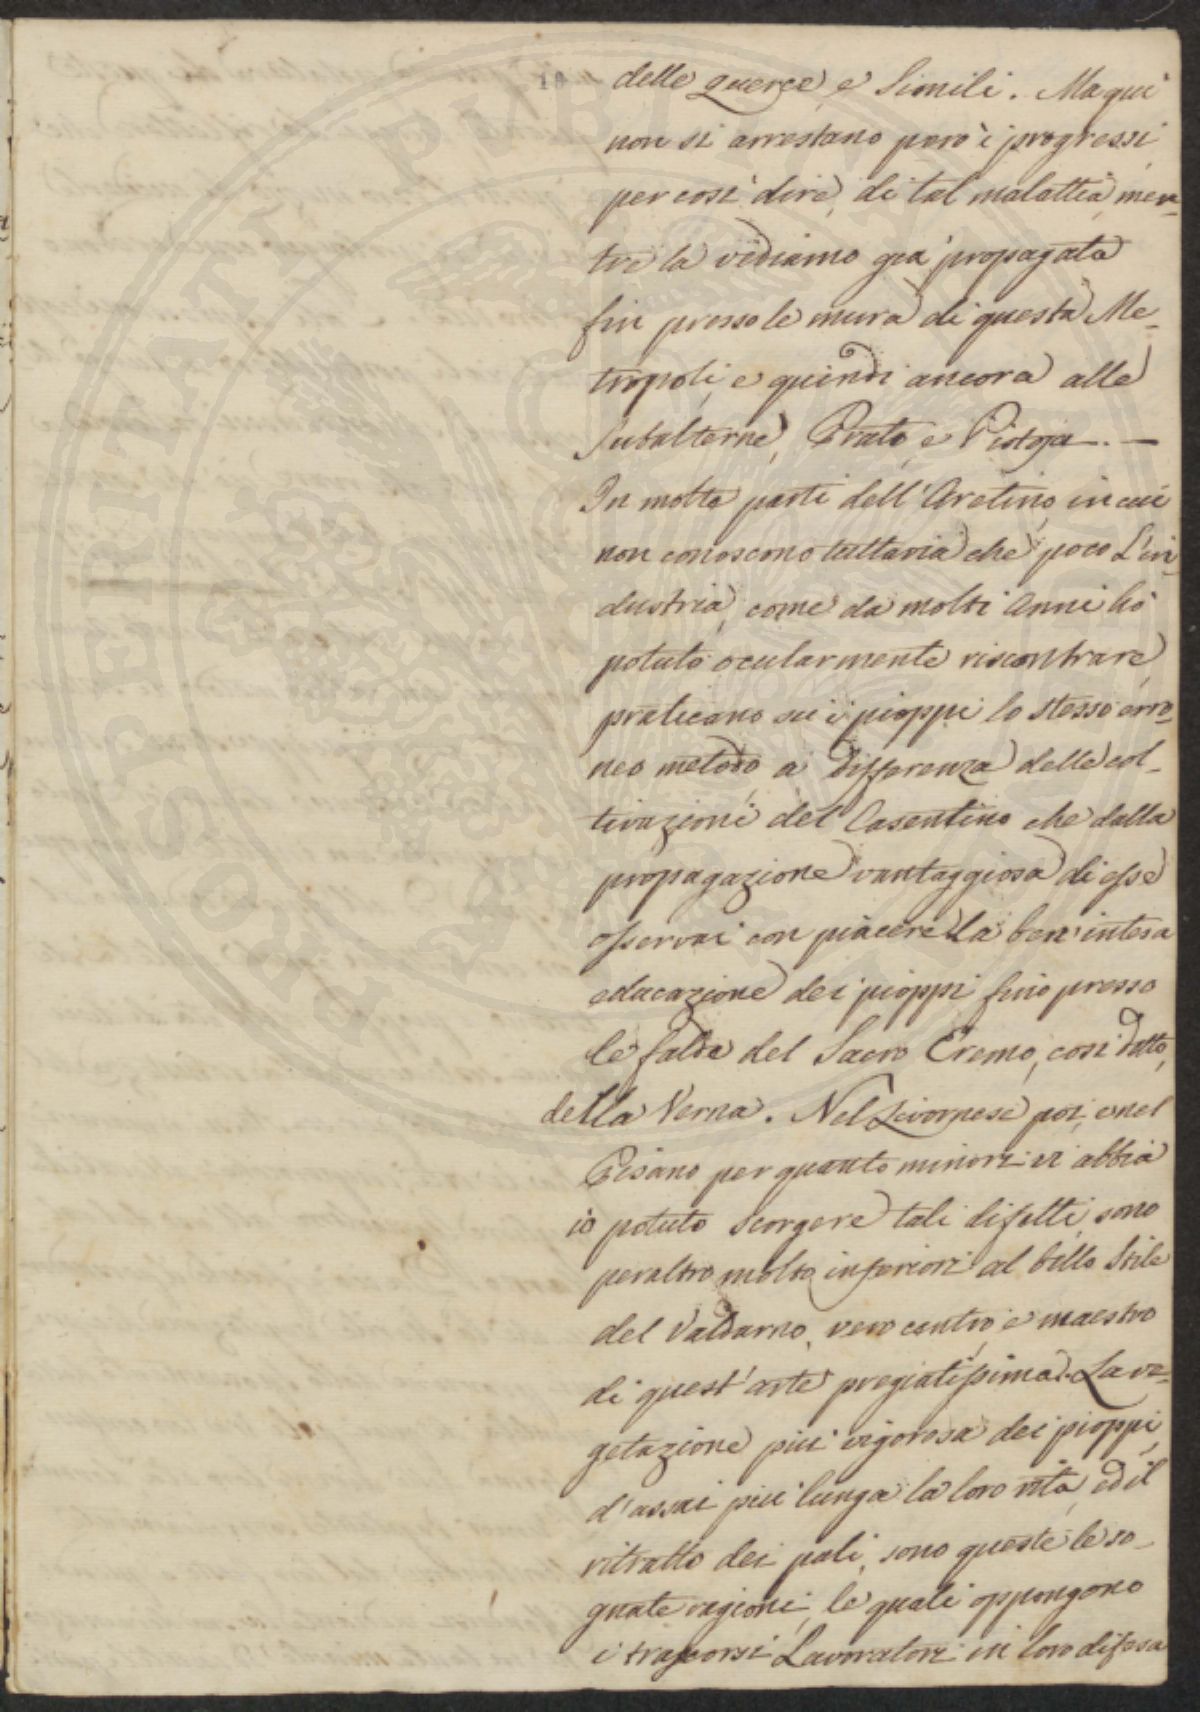 delle querce, e Simili. Ma qui
non si arrestano però i progressi
per così dire, di tal malattia, men-
tre la vediamo già propagata
fin presso le mura di questa Me-
tropoli, e quindi ancora alle
Subalterne, Prato, e Pistoja. —
In molte parti dell'Aretino, in cui
non conoscono tuttavia che poco L'in-
dustria, come da molti Anni hò
potuto ocularmente riscontrare,
praticano su i pioppi lo stesso erro-
neo metodo a differenza delle col-
tivazioni del Casentino che dalla
propagazione vantaggiosa di esse
osservai con piacere la ben'intesa
educazione dei pioppi fino presso
le falde del Sacro Eremo, così detto,
della Verna. Nel Livornese poi, e nel
Pisano per quanto minori vi abbia
io potuto scorgere tali difetti, sono
peraltro molto inferiori al bello Stile
del Valdarno, vero centro, e maestro
di quest'arte pregiatissima. La ve-
getazione più vigorosa dei pioppi,
d'assai più lunga la loro vita, ed il
ritratto dei pali, sono queste le so-
gnate ragioni, le quali oppongono
i trascorsi Lavoratori in loro difesa
PROSPERITATI PUBLICAE